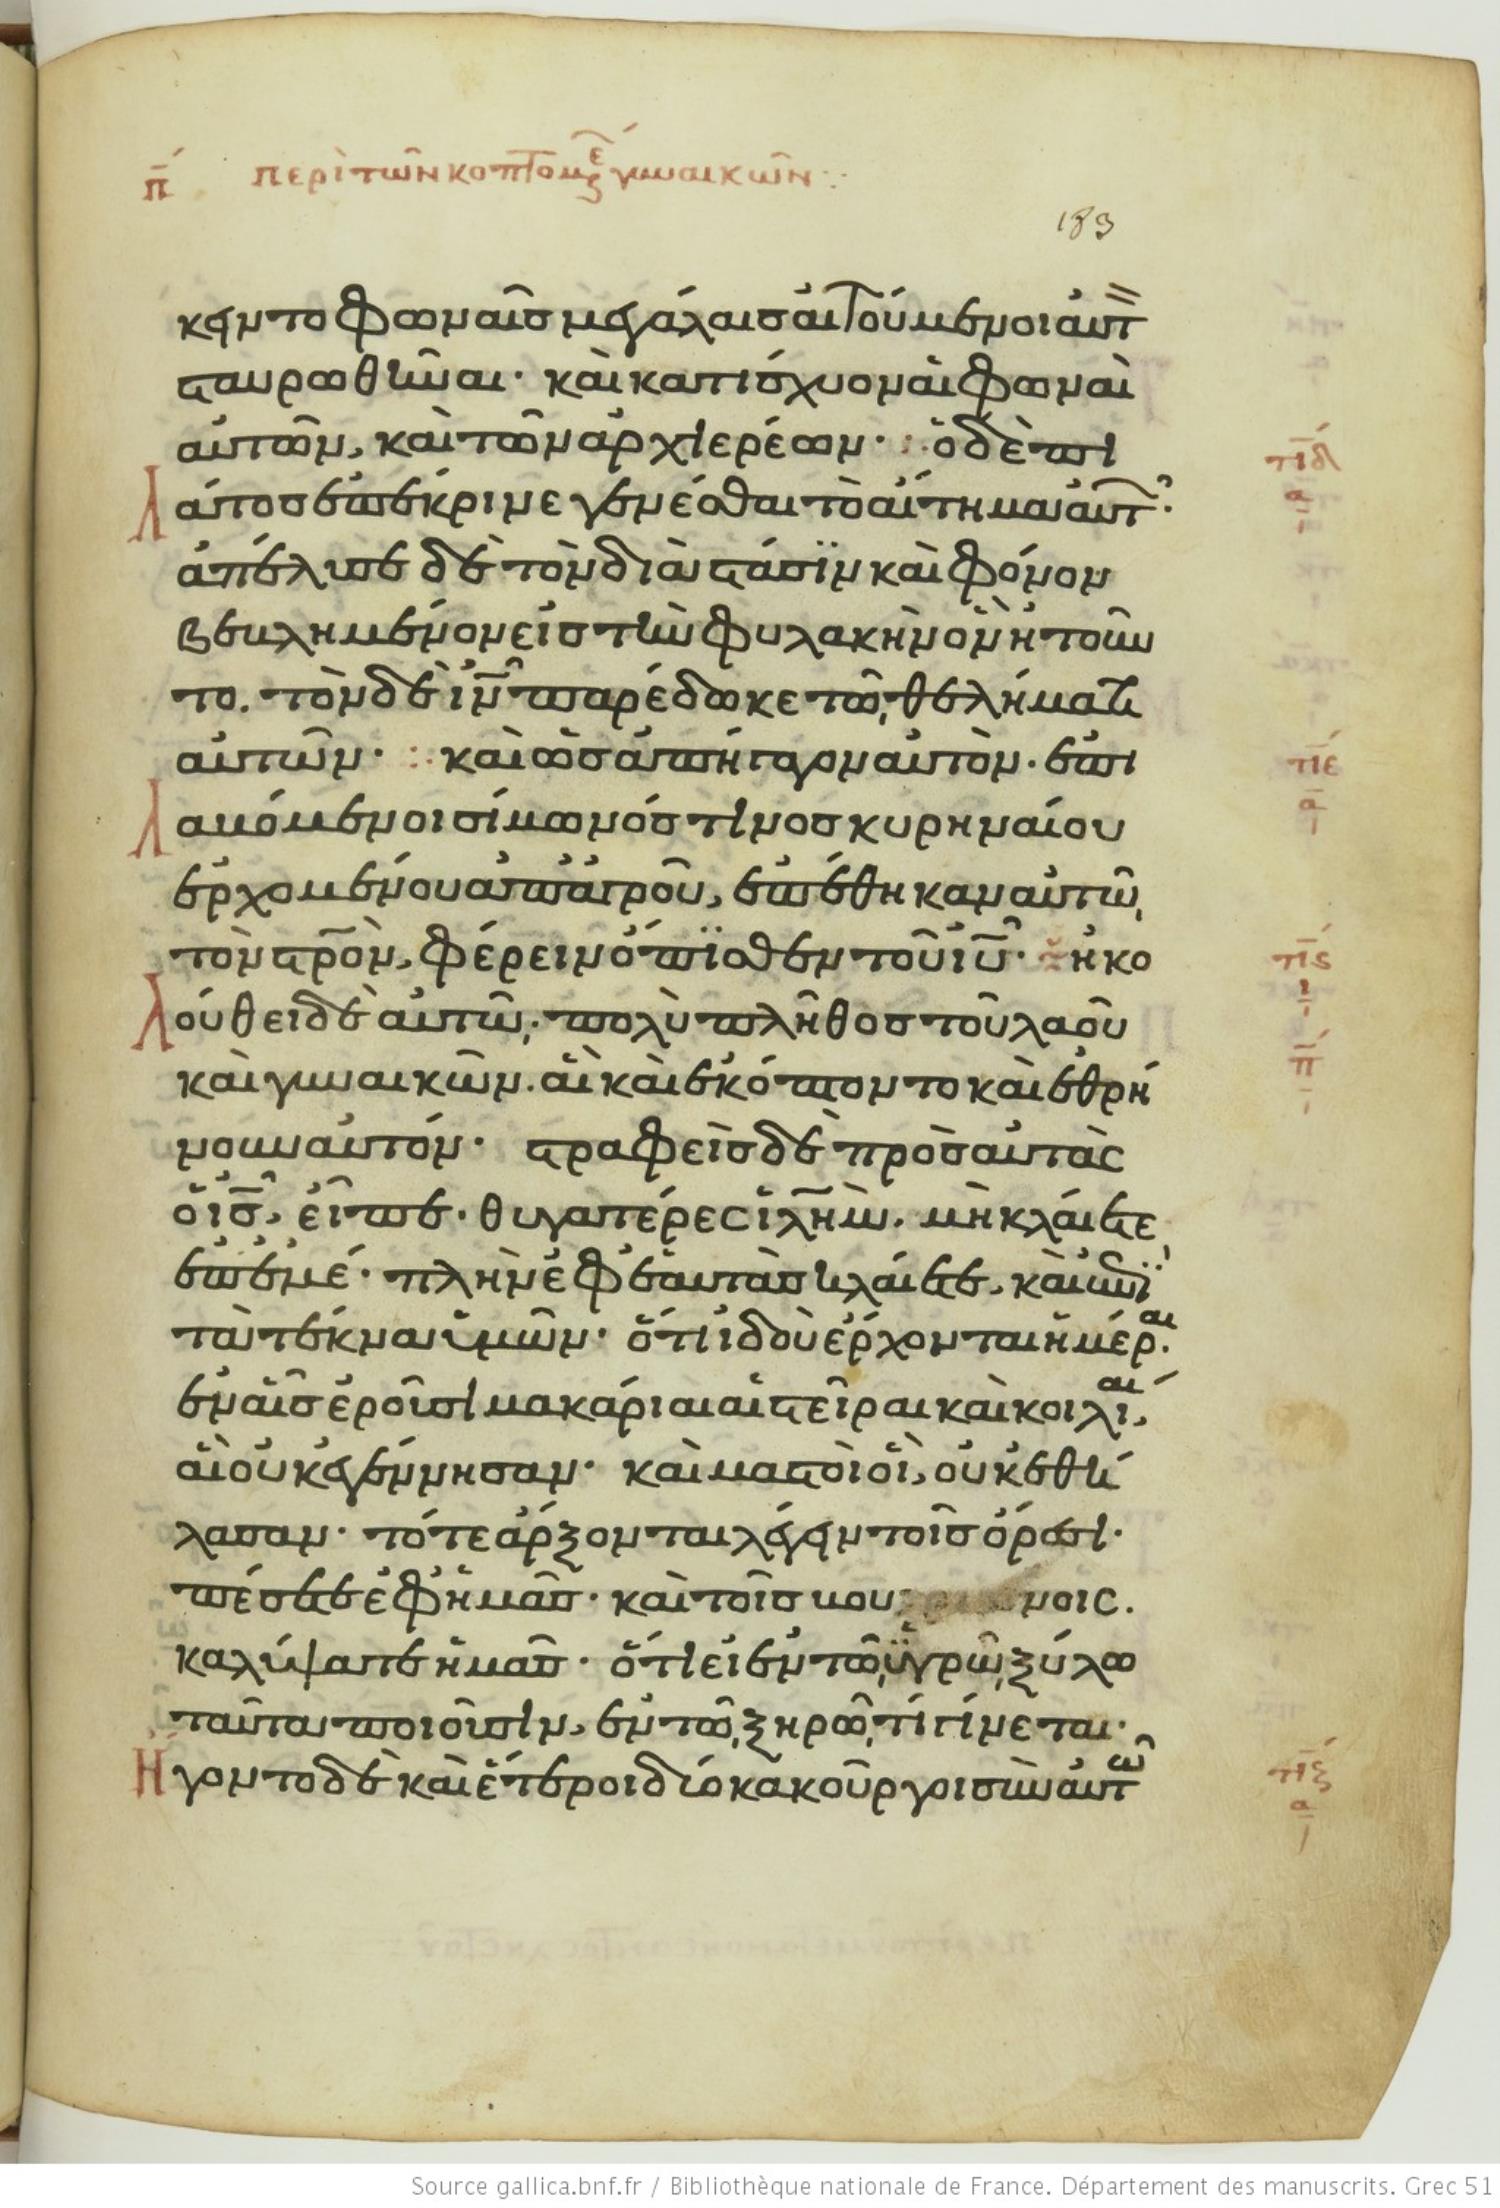 π περὶ τῶν κοπτομέ γυναικῶν
183
κειντο φωναῖς μεγάλαις αἰτούμενοι αὐτ
σταυρωθῆναι· καὶ κατίσχυον αἱ φωναὶ
αὐτῶν, καὶ τῶν ἀρχιερέων· ὁ δὲ πι
λάτος ἐπέκρινε γενέσθαι τὸ αἴτημα αὐτ·
ἀπέλυσε δὲ τὸν διὰ στάσϊν καὶ φόνον
βεβλημένον εἰς τὴν φυλακὴν ὃν ἠτοῦν
το. τὸν δὲ ιν παρέδωκε τῶ θελήματι
αὐτῶν· καὶ ὡς ἀπήγαγον αὐτὸν. ἐπι
λαβόμενοι σίμωνός τινος κυρηναίου
ἐρχομένου ἀπὸ ἀγροῦ, ἐπέθηκαν αὐτῶ
τὸν στρον, φέρειν ὄπϊσθεν τοῦ ιυ· ἠκο
λούθει δὲ αὐτῶ· πολὺ πλῆθος τοῦ λαοῦ
καὶ γυναικῶν. αἳ καὶ ἐκόπτοντο καὶ ἐθρή
νουν αὐτόν· στραφεὶς δὲ πρὸς αὐτὰς
ὁ ις, εἶπε· θυγατέρες ιλημ. μὴ κλαίετε
ἐπ' ἐμέ· πλὴν ἐφ' ἑαυτὰς κλαίετε, καὶ ἐπὶ
τὰ τέκνα ὑμῶν· ὅτι ἰδοὺ ἔρχονται ἡμέραι.
ἐν αἷς ἐροῦσι μακάριαι αἱ στεῖραι καὶ κοιλίαι,
αἳ οὐκ ἐγέννησαν· καὶ μαστοὶ οἳ, οὐκ ἐθή
λασαν· τότε ἄρξονται λέγειν τοῖς ὄρεσι·
πέσετε ἐφ' ἡμᾶς· καὶ τοῖς βουνοις.
καλύψατε ἡμᾶς· ὅτι εἰ ἐν τῶ ὑγρῶ ξύλω
ταῦτα ποιοῦσιν, ἐν τῶ ξηρῶ τί γίνεται·
Ἤγοντο δὲ καὶ ἕτεροι δύο κακοῦργοι σὺν αὐτῶ
τιδ
α
τιε
α
τις
ι
π
τιζ
α
Source gallica.bnf.fr / Bibliothèque nationale de France. Département des manuscrits. Grec 51